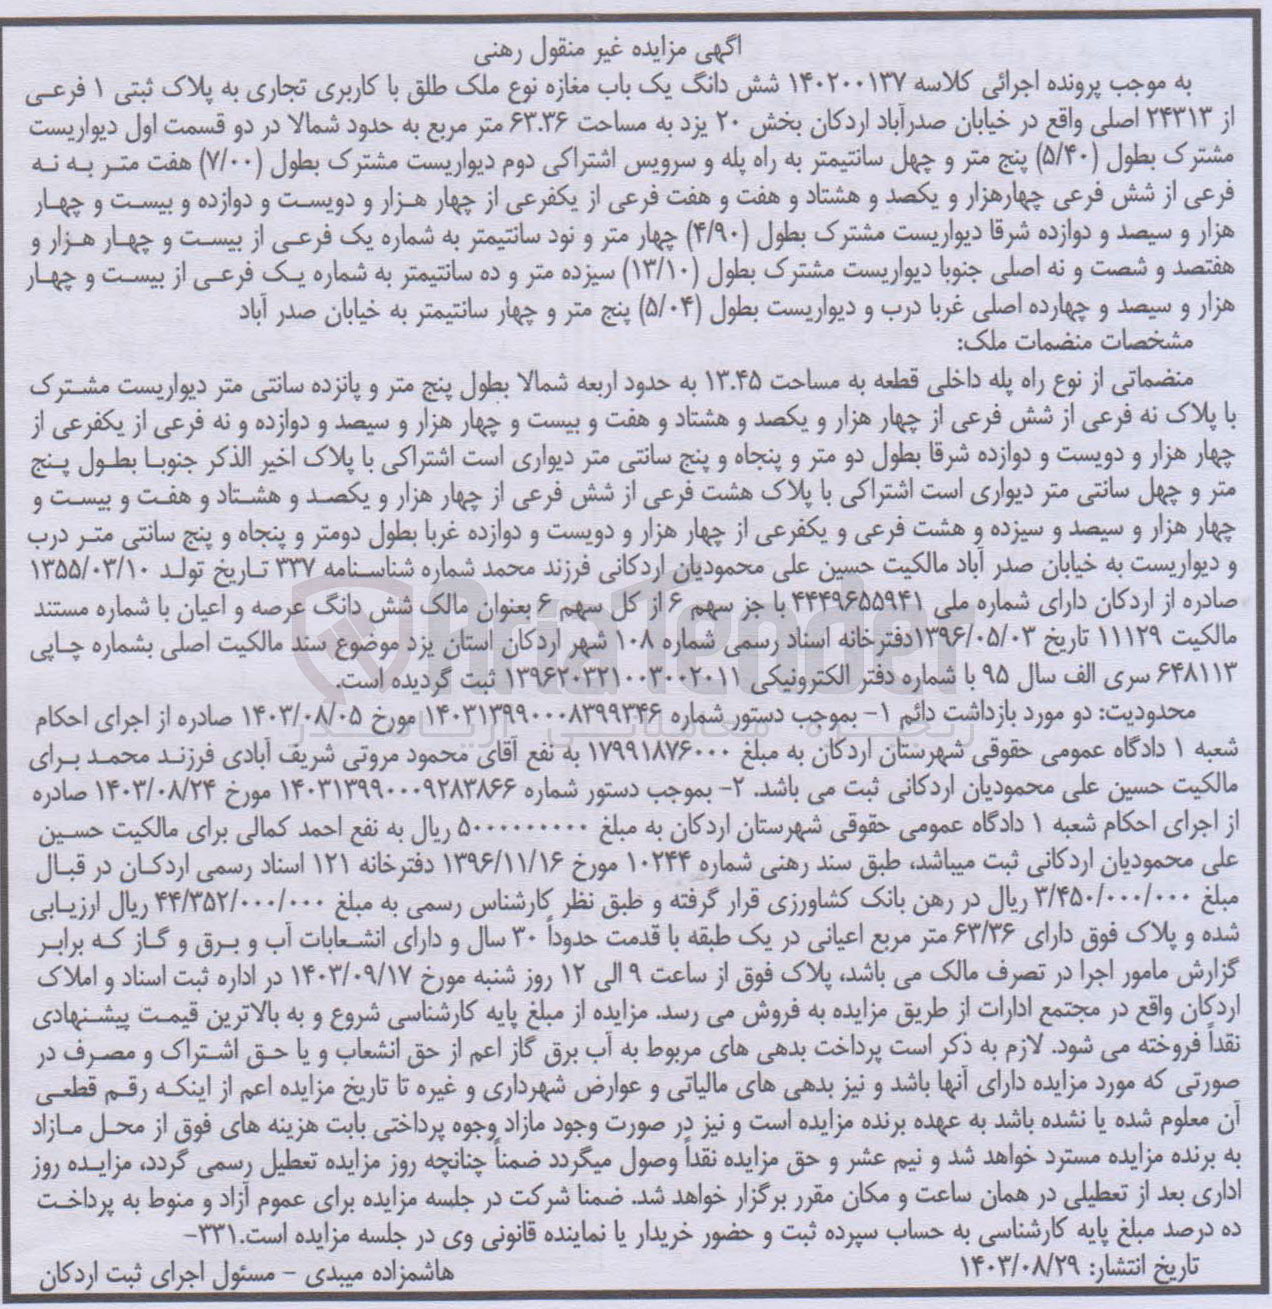 اگهی مزایده غیر منقول رهنی
به موجب پرونده اجرائی کلاسه ۱۴۰۲۰۰۱۳۷ شش دانگ یک باب مغازه نوع ملک طلق با کاربری تجاری به پلاک ثبتی ۱ فرعی
از ۲۴۳۱۳ اصلی واقع در خیابان صدرآباد اردکان بخش ۲۰ یزد به مساحت ۶۳.۳۶ متر مربع به حدود شمالا در دو قسمت اول دیواریست
مشترک بطول (۵/۴۰) پنج متر و چهل سانتیمتر به راه پله و سرویس اشتراکی دوم دیواریست مشترک بطول (۷/۰۰) هفت متر به نه
فرعی از شش فرعی چهارهزار و یکصد و هشتاد و هفت و هفت فرعی از یکفرعی از چهار هزار و دویست و دوازده و بیست و چهار
هزار و سیصد و دوازده شرقا دیواریست مشترک بطول (۴/۹۰) چهار متر و نود سانتیمتر به شماره یک فرعی از بیست و چهار هزار و
هفتصد و شصت و نه اصلی جنوبا دیواریست مشترک بطول (۱۳/۱۰) سیزده متر و ده سانتیمتر به شماره یک فرعی از بیست و چهار
هزار و سیصد و چهارده اصلی غربا درب و دیواریست بطول (۵/۰۴) پنج متر و چهار سانتیمتر به خیابان صدر آباد
مشخصات منضمات ملک:
منضماتی از نوع راه پله داخلی قطعه به مساحت ۱۳.۴۵ به حدود اربعه شمالا بطول پنج متر و پانزده سانتی متر دیواریست مشترک
با پلاک نه فرعی از شش فرعی از چهار هزار و یکصد و هشتاد و هفت و بیست و چهار هزار و سیصد و دوازده و نه فرعی از یکفرعی از
چهار هزار و دویست و دوازده شرقا بطول دو متر و پنجاه و پنج سانتی متر دیواری است اشتراکی با پلاک اخیر الذکر جنوبا بطول پنج
متر و چهل سانتی متر دیواری است اشتراکی با پلاک هشت فرعی از شش فرعی از چهار هزار و یکصد و هشتاد و هفت و بیست و
چهار هزار و سیصد و سیزده و هشت فرعی و یکفرعی از چهار هزار و دویست و دوازده غربا بطول دومتر و پنجاه و پنج سانتی متر درب
و دیواریست به خیابان صدر آباد مالکیت حسین علی محمودیان اردکانی فرزند محمد شماره شناسنامه ۳۳۷ تاریخ تولد ۱۳۵۵/۰۳/۱۰
صادره از اردکان دارای شماره ملی ۴۴۴۹۶۵۵۹۴۱ با جز سهم ۶ از کل سهم ۶ بعنوان مالک شش دانگ عرصه و اعیان با شماره مستند
مالکیت ۱۱۱۲۹ تاریخ ۱۳۹۶/۰۵/۰۳دفترخانه اسناد رسمی شماره ۱۰۸ شهر اردکان استان یزد موضوع سند مالکیت اصلی بشماره چاپی
۶۴۸۱۱۳ سری الف سال ۹۵ با شماره دفتر الکترونیکی ۱۳۹۶۲۰۳۲۱۰۰۳۰۰۲۰۱۱ ثبت گردیده است.
محدودیت: دو مورد بازداشت دائم ۱- بموجب دستور شماره ۱۴۰۳۱۳۹۹۰۰۰۸۳۹۹۳۴۶ مورخ ۱۴۰۳/۰۸/۰۵ صادره از اجرای احکام
شعبه ۱ دادگاه عمومی حقوقی شهرستان اردکان به مبلغ ۱۷۹۹۱۸۷۶۰۰۰ به نفع آقای محمود مروتی شریف آبادی فرزند محمد برای
مالکیت حسین علی محمودیان اردکانی ثبت می باشد. ۲- بموجب دستور شماره ۱۴۰۳۱۳۹۹۰۰۰۹۲۸۳۸۶۶ مورخ ۱۴۰۳/۰۸/۲۴ صادره
از اجرای احکام شعبه ۱ دادگاه عمومی حقوقی شهرستان اردکان به مبلغ ۵۰۰۰۰۰۰۰۰۰ ریال به نفع احمد کمالی برای مالکیت حسین
علی محمودیان اردکانی ثبت میباشد، طبق سند رهنی شماره ۱۰۲۴۴ مورخ ۱۳۹۶/۱۱/۱۶ دفترخانه ۱۲۱ اسناد رسمی اردکان در قبال
مبلغ ۳/۴۵۰/۰۰۰/۰۰۰ ریال در رهن بانک کشاورزی قرار گرفته و طبق نظر کارشناس رسمی به مبلغ ۴۴/۳۵۲/۰۰۰/۰۰۰ ریال ارزیابی
شده و پلاک فوق دارای ۶۳/۳۶ متر مربع اعیانی در یک طبقه با قدمت حدوداً ۳۰ سال و دارای انشعابات آب و برق و گاز که برابر
گزارش مامور اجرا در تصرف مالک می باشد، پلاک فوق از ساعت ۹ الی ۱۲ روز شنبه مورخ ۱۴۰۳/۰۹/۱۷ در اداره ثبت اسناد و املاک
اردکان واقع در مجتمع ادارات از طریق مزایده به فروش می رسد. مزایده از مبلغ پایه کارشناسی شروع و به بالاترین قیمت پیشنهادی
نقداً فروخته می شود. لازم به ذکر است پرداخت بدهی های مربوط به آب برق گاز اعم از حق انشعاب و یا حق اشتراک و مصرف در
صورتی که مورد مزایده دارای آنها باشد و نیز بدهی های مالیاتی و عوارض شهرداری و غیره تا تاریخ مزایده اعم از اینکه رقم قطعی
آن معلوم شده یا نشده باشد به عهده برنده مزایده است و نیز در صورت وجود مازاد وجوه پرداختی بابت هزینه های فوق از محل مازاد
به برنده مزایده مسترد خواهد شد و نیم عشر و حق مزایده نقداً وصول میگردد ضمناً چنانچه روز مزایده تعطیل رسمی گردد، مزایده روز
اداری بعد از تعطیلی در همان ساعت و مکان مقرر برگزار خواهد شد. ضمنا شرکت در جلسه مزایده برای عموم آزاد و منوط به پرداخت
ده درصد مبلغ پایه کارشناسی به حساب سپرده ثبت و حضور خریدار یا نماینده قانونی وی در جلسه مزایده است.۳۳۱-
تاریخ انتشار: ۱۴۰۳/۰۸/۲۹
هاشمزاده میبدی - مسئول اجرای ثبت اردکان
AriaTender